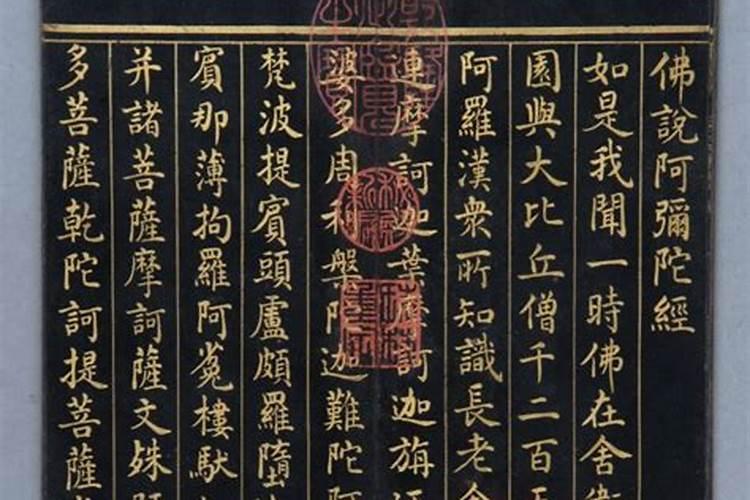 佛說阿彌陀經
如是我聞一時佛在舍衛
園與大比丘僧千二百五
阿羅漢眾所知識長老舍
連摩訶迦葉摩訶迦旃延
婆多周利槃陀迦難陀阿
梵波提賓頭盧頗羅墮
賓那薄拘羅阿㝹樓馱
并諸菩薩摩訶薩文殊師
多菩薩乾陀訶提菩薩